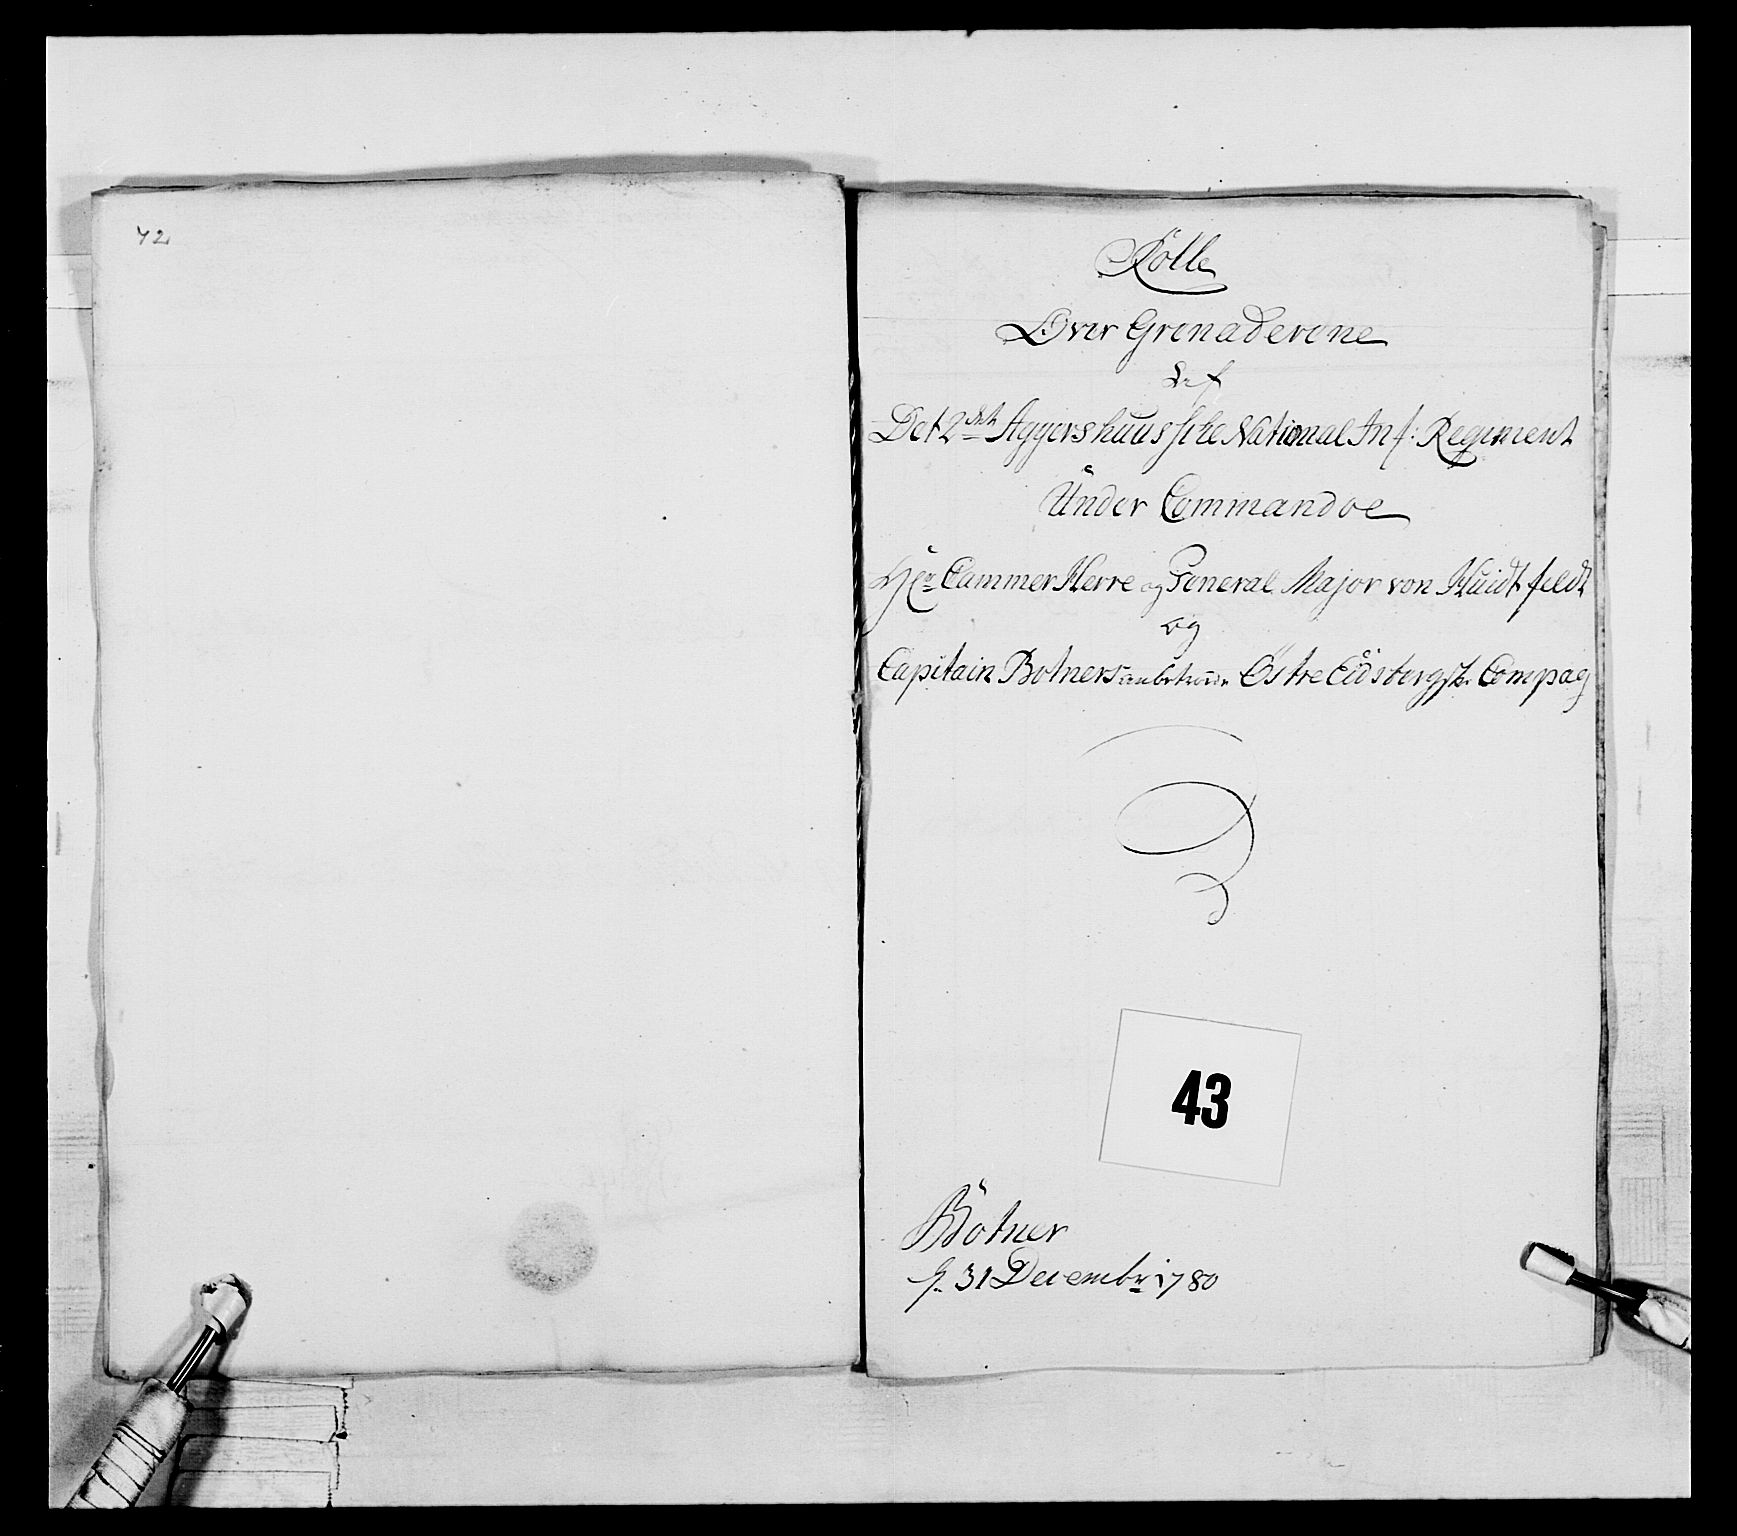 42
Rolle
Over Grenaderene
af
Det 2det Aggershuusiske National Inf: Regiment
Under Commandoe
Hr Cammer Herre og General Major von Huidtfeldt
og
Capitain Botners anbetroede Östre Eidsbergske Compag
43
Botner
d. 31 Decembr 1780